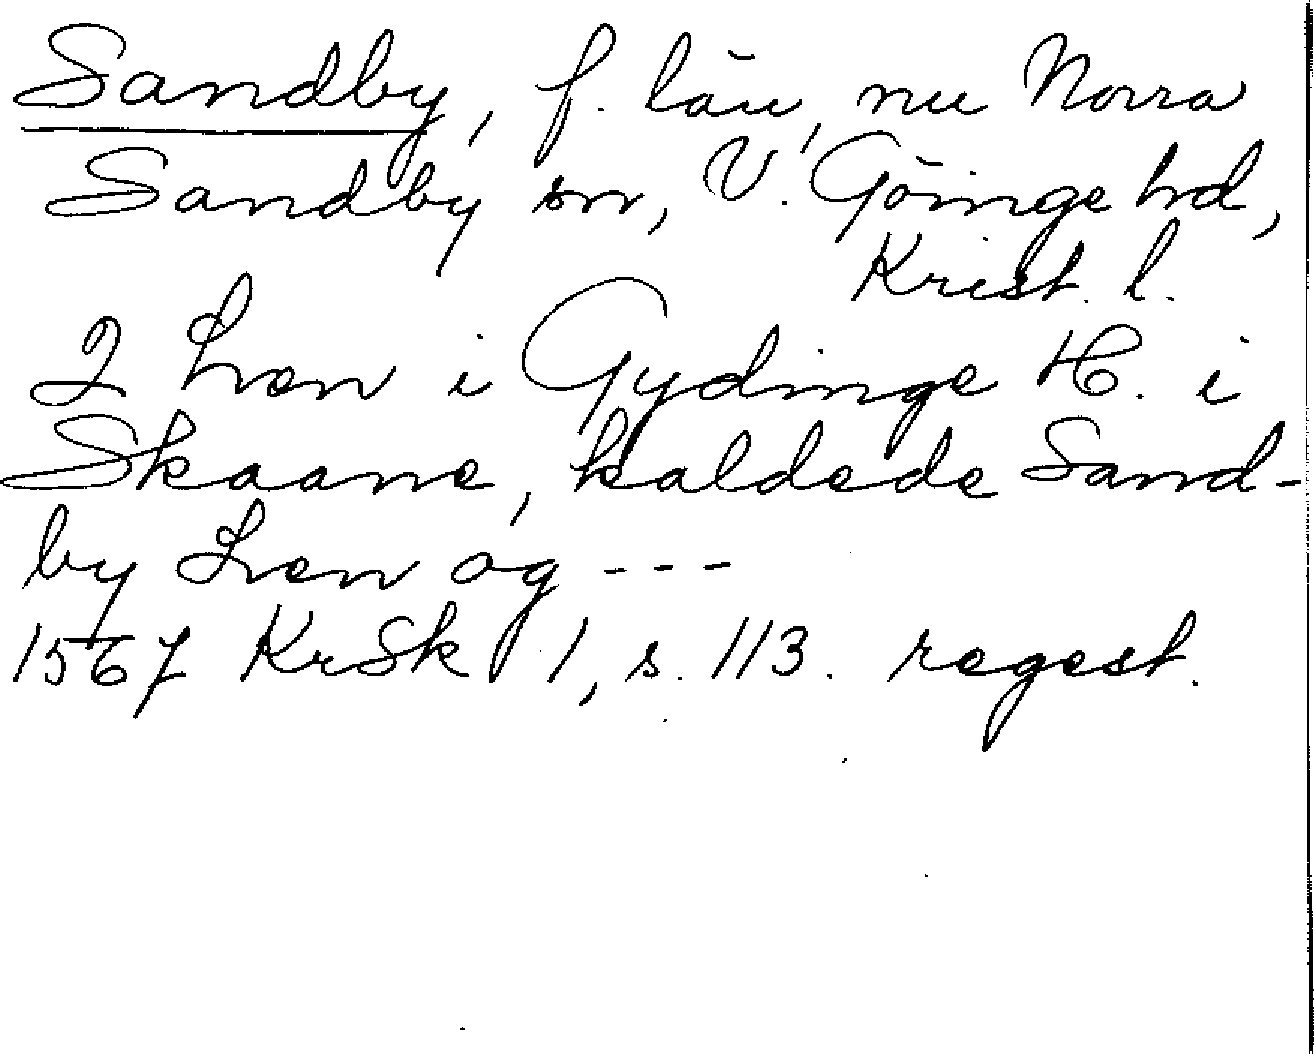 Sandby, f. län, nu Norra
Sandby sn, V. Göinge hd,
Krist. l.
2 Læn i Gydinge H. i
Skaane, kaldede Sand-
by Læn og ---
1567 KrSk 1, s. 113. regest.